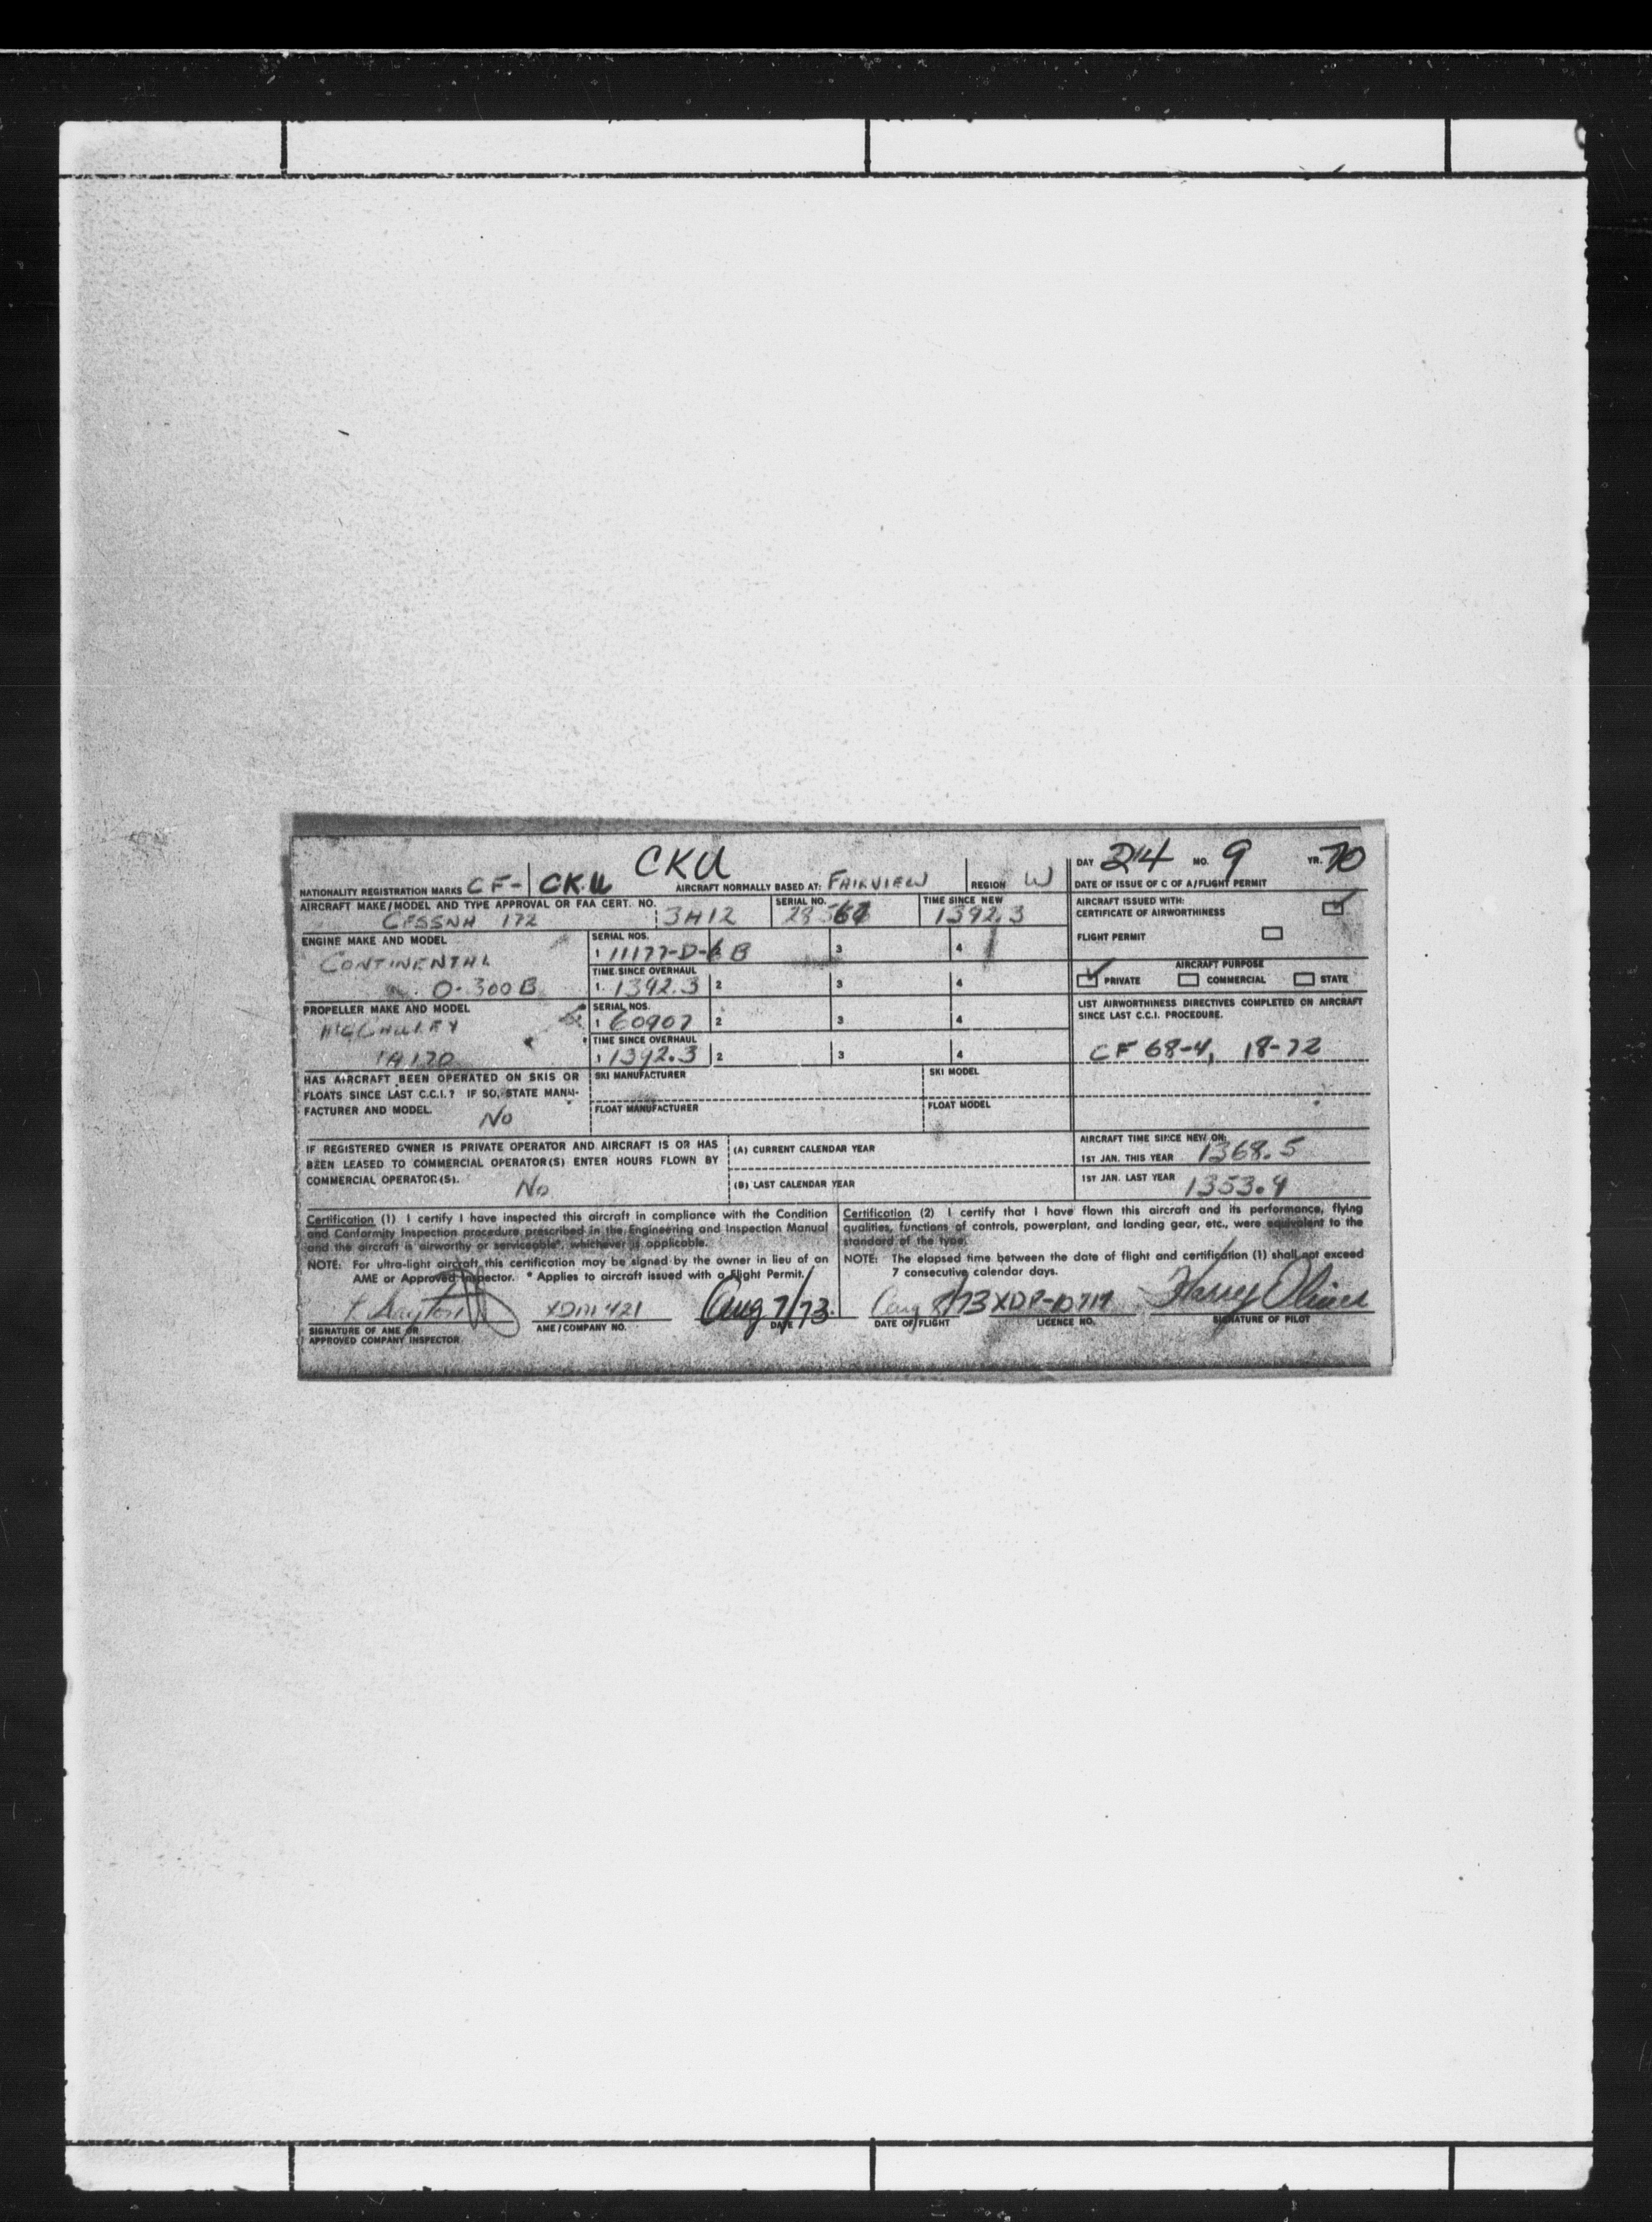 CKU
DAY 24 MO. 9 YR. 70
NATIONALITY REGISTRATION MARKS CF- CKU AIRCRAFT NORMALLY BASED AT: FAIRVIEW REGION W DATE OF ISSUE OF C OF A/FLIGHT PERMIT
AIRCRAFT MAKE/MODEL AND TYPE APPROVAL OR FAA CERT. NO. SERIAL NO. TIME SINCE NEW
CESSNA 172 3A12 1392.3
AIRCRAFT ISSUED WITH:
CERTIFICATE OF AIRWORTHINESS
FLIGHT PERMIT
ENGINE MAKE AND MODEL
CONTINENTAL
O-300B
SERIAL NOS.
1 11177-D-6B 3 4
TIME SINCE OVERHAUL
1. 1392.3 2 3 4
AIRCRAFT PURPOSE
PRIVATE COMMERCIAL STATE
PROPELLER MAKE AND MODEL
McCAULEY
1A170
SERIAL NOS.
1 60907 2 3 4
TIME SINCE OVERHAUL
1 1392.3 2 3 4
LIST AIRWORTHINESS DIRECTIVES COMPLETED ON AIRCRAFT
SINCE LAST C.C.I. PROCEDURE.
CF 68-4, 18-72
HAS AIRCRAFT BEEN OPERATED ON SKIS OR
FLOATS SINCE LAST C.C.I.? IF SO, STATE MANU-
FACTURER AND MODEL.
No
SKI MANUFACTURER SKI MODEL
FLOAT MANUFACTURER FLOAT MODEL
IF REGISTERED OWNER IS PRIVATE OPERATOR AND AIRCRAFT IS OR HAS
BEEN LEASED TO COMMERCIAL OPERATOR(S) ENTER HOURS FLOWN BY
COMMERCIAL OPERATOR(S).
No
(A) CURRENT CALENDAR YEAR
(B) LAST CALENDAR YEAR
AIRCRAFT TIME SINCE NEW ON:
1ST JAN. THIS YEAR 1368.5
1ST JAN. LAST YEAR 1353.9
Certification (1) I certify I have inspected this aircraft in compliance with the Condition
and Conformity Inspection procedure prescribed in the Engineering and Inspection Manual
and the aircraft is airworthy or serviceable*, whichever is applicable.
NOTE: For ultra-light aircraft this certification may be signed by the owner in lieu of an
AME or Approved Inspector. * Applies to aircraft issued with a Flight Permit.
Certification (2) I certify that I have flown this aircraft and its performance, flying
qualities, functions of controls, powerplant, and landing gear, etc., were equivalent to the
standard of the type.
NOTE: The elapsed time between the date of flight and certification (1) shall not exceed
7 consecutive calendar days.
XDM 421 Aug 7/73 Aug 8/73 XDP-10717 Harry Oliver
SIGNATURE OF AME OR
APPROVED COMPANY INSPECTOR.
AME/COMPANY NO. DATE DATE OF FLIGHT LICENCE NO. SIGNATURE OF PILOT